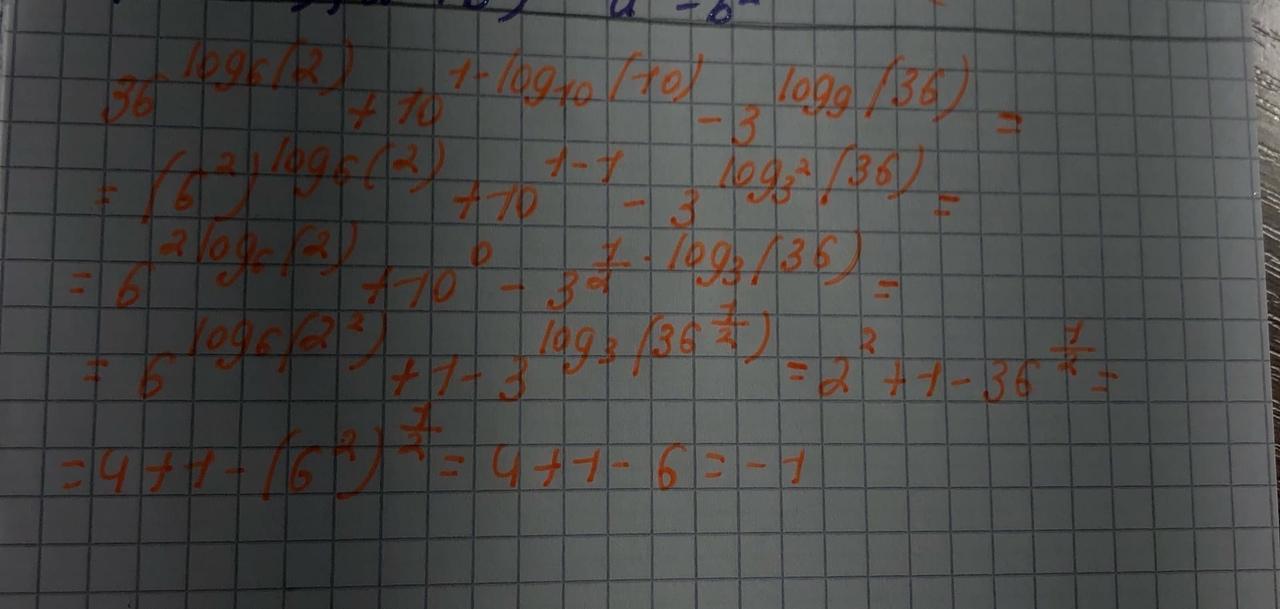 a - b²
36^log₆(2) + 10^1-log₁₀(10) - 3^log₉(36) =
= (6²)^log₆(2) + 10^1-1 - 3^log₃²(36) =
= 6^2log₆(2) + 10⁰ - 3^1/2·log₃(36) =
= 6^log₆(2²) + 1 - 3^log₃(36^1/2) = 2² + 1 - 36^1/2 =
= 4 + 1 - (6²)^1/2 = 4 + 1 - 6 = -1